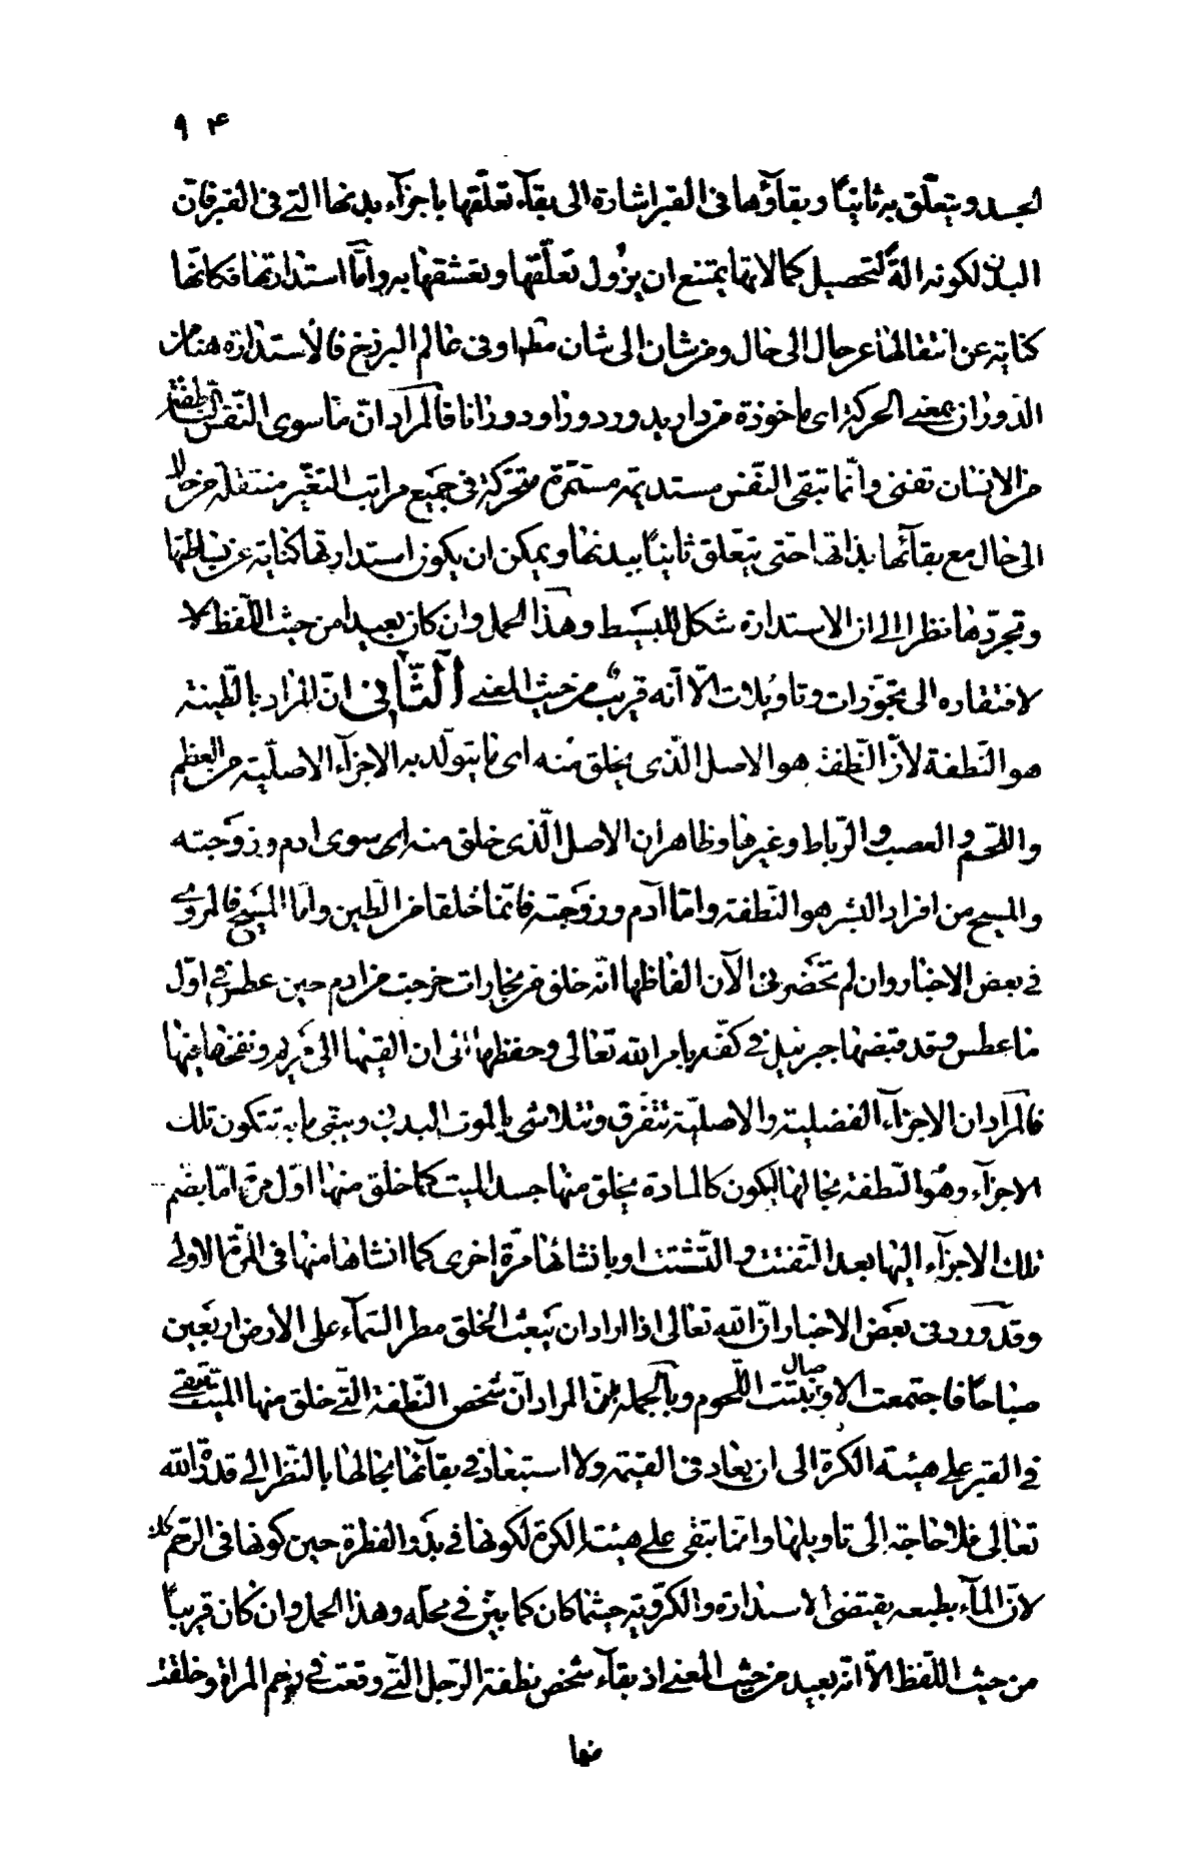 ۹۴
الجسد ويتعلّق به ثانيًا وبقاؤها فى القبر اشارة الى بقآء تعلّقها باجزآء بدنها التى فى القبر فانّ
البدن لكونه الةً لتحصيل كمالاتها يمتنع ان يزول تعلّقها وتعشقها به وامّا استدارتها فكانّها
كناية عن انتقالها عن حال الى حال ومن شان الى شان فى عالم البرزخ فالأستدارة هنا من
الدوران بمعنى الحركة اى ماخوذة من دار يدور دورا ودورانا فالمراد انّ ما سوى النّفس النّاطقة
من الانسان تفنى وانّما تبقى النّفس مستديمة مستمرّة متحركة فى جميع مراتب التغيّر منتقلة من حال
الى حال مع بقآئها بذاتها حتى يتعلق ثانيًا ببدنها ويمكن ان يكون استدارتها كناية عن بساطتها
وتجرّدها نظرا الى ان الاستدارة شكل للبسيط وهذا الحمل وان كان بعيدا من حيث اللّفظ لا
لافتقاره الى تجوّزات وتاويلات الّا انّه قريب من حيث المعنى الثّانى انّ المراد بالطّينة
هو النّطفة لانّ النّطفة هو الاصل الّذى يخلق منه اى ما يتولّد به الاجزآء الاصليّة من العظم
واللّحم والعصب والرّباط وغيرها وظاهر ان الاصل الّذى خلق منه اى سوى ادم وزوجته
والمسيح من افراد البشر هو النّطفة وامّا آدم وزوجته فانّما خلقا من الطّين وامّا المسيح فالمروى
فى بعض الاخبار وان لم تحضرنى الآن الفاظها انّه خلق من بخارات خرجت من ادم حين عطس فى اوّل
ما عطس وقد قبضها جبرئيل فى كفّه بامر الله تعالى وحفظها الى ان القيها الى مريم ونفخها فيها
فالمراد ان الاجزآء الفضلية والاصليّة تتفرق وتتلاشى بالموت البدنى ويبقى ما به تتكون تلك
الاجزآء وهو النّطفة بحالها ليكون كالمادة يخلق منها جسد الميت كما خلق منها اوّل مرّة امّا بضم
تلك الاجزآء اليها بعد التّفتت والتّشتت او بانشائها مرّة اخرى كما انشاها منها فى المرّة الاولى
وقد ورد فى بعض الاخبار انّ الله تعالى اذا اراد ان يبعث الخلق مطر السّمآء على الارض اربعين
صباحًا فاجتمعت الاوصال ونبتت اللّحوم وبالجملة المراد انّ شخص النّطفة الّتى خلق منها الميّت تبقى
فى القبر على هيئة الكرة الى ان يعاد فى القيمة ولا استبعاد فى بقآئها بحالها بالنّظر الى قدرة الله
تعالى فلا حاجة الى تاويلها وانّما تبقى على هيئة الكرة لكونها فى بدو الفطرة حين كونها فى الرّحم كذلك
لانّ المآء بطبعه يقتضى الاستدارة والكرويّة حيثما كان كما بيّن فى محلّه وهذا الحمل وان كان قريبًا
من حيث اللّفظ الّا انّه بعيد من حيث المعنى اذ بقآء شخص نطفة الرّجل الّتى وقعت فى رحم المراة وخلقت
منها